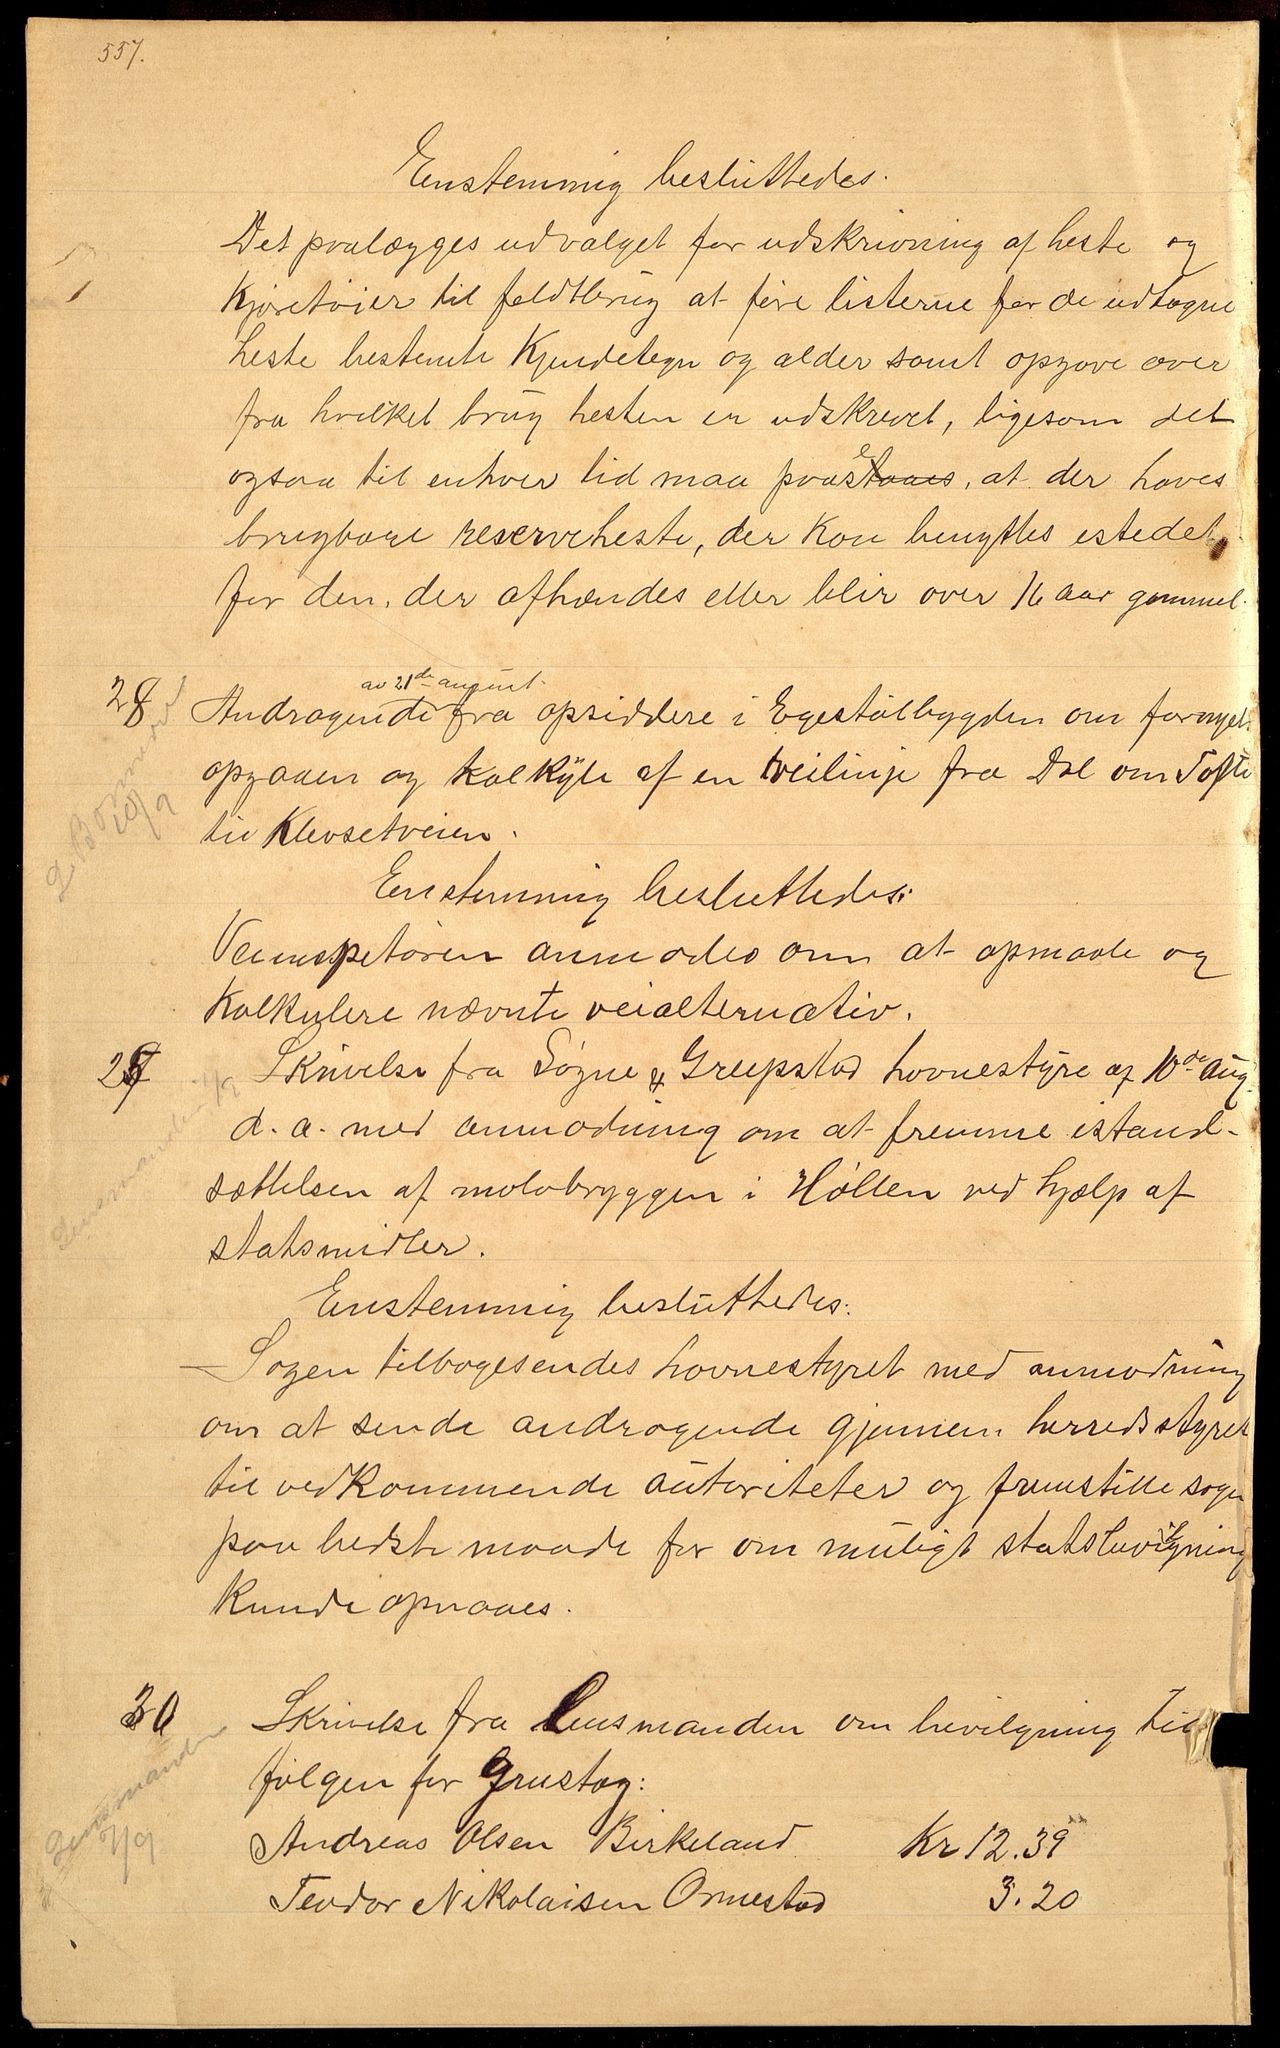 557.
Enstemmig besluttedes.
Det paalægges udvalget for udskrivning af heste og
Kjøretøier til feldtbrug at føre listerne for de udtagne
heste bestemte Kjendetegn og alder samt opgave over
fra hvilket brug hesten er udskrevet, ligesom det
ogsaa til enhver tid maa paasees, at der haves
brugbare reserveheste, der Kan benyttes istedet
for den, der afhændes eller blir over 16 aar gammel.
av 21de august
28 Andragende fra opsiddere i Egestølbygden om fornyet
opgaaen og Kalkyle af en veilinje fra Dal om Tofte
til Klevsetveien.
Enstemmig besluttedes:
Veiinspetøren anmodes om at opmaale og
Kalkulere nævnte veialternativ.
29 Skrivelse fra Søgne & Greipstad havnestyre af 10de aug.
d. a. med anmodning om at fremme istand-
sættelsen af molobryggen i Høllen ved hjælp af
statsmidler.
Enstemmig besluttedes:
Sagen tilbagesendes havnestyret med anmodning
om at sende andragende gjennem herredsstyret
til vedkommende autoriteter og fremstille sagen
paa bedste maade for om muligt statsbevilgning
Kunde opnaaes.
30 Skrivelse fra Lensmanden om bevilgning til
følgen for Grustag:
Andreas Olsen Birkeland Kr 12.39
Teodor Nikolaisen Ormestad 3.20
Lensmanden 7/9